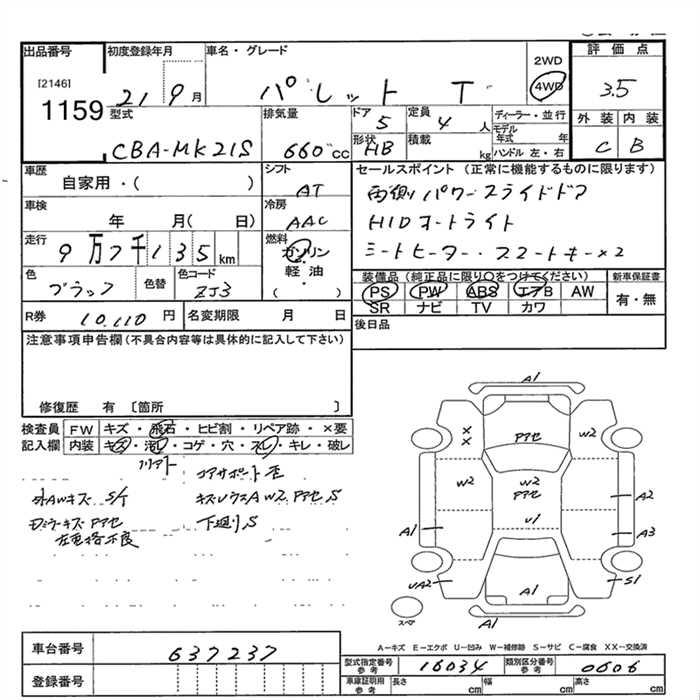 出品番号 初度登録年月 車名・グレード 評価点
[2146]
1159 21 9月 パレット T 2WD 4WD 3.5
型式 排気量 ドア 定員 ディーラー・並行 外装 内装
CBA-MK21S 660cc 5 4人 モデル年式 年 C B
形状 積載 ハンドル 左・右
HB kg
車歴 シフト セールスポイント (正常に機能するものに限ります)
自家用・( ) AT 両側パワースライドドア
車検 冷房 HIDオートライト
年 月( 日) AAC シートヒーター・スマートキー×2
走行 燃料
9万7千135km ガソリン
軽油
・
( )
色 色替 色コード 装備品(純正品に限り○をつけてください) 新車保証書
ブラック ZJ3 PS PW ABS エアB AW 有・無
SR ナビ TV カワ
R券 10,110円 名変期限 月 日 後日品
注意事項申告欄(不具合内容等は具体的に記入して下さい)
修復歴 有 〔箇所 〕
検査員 FW キズ・飛石・ヒビ割・リペア跡・×要
記入欄 内装 キズ・汚れ・コゲ・穴・スレ・キレ・破し
コアサポート歪
外AWキズ S/T
ドアミラーキズ アアセ
下廻りS
A1
アアセ
W2
W2
W2
アアセ
U1
A2
A3
A1
UA2
A1
S1
A1
スペア
A-キズ E-エクボ U-凹み W-補修跡 S-サビ C-腐食 XX-交換済
車台番号 637237
型式指定番号 参考 16034 類別区分番号 参考 0606
登録番号 車庫証明用 参考 長さ cm 幅 cm 高さ cm